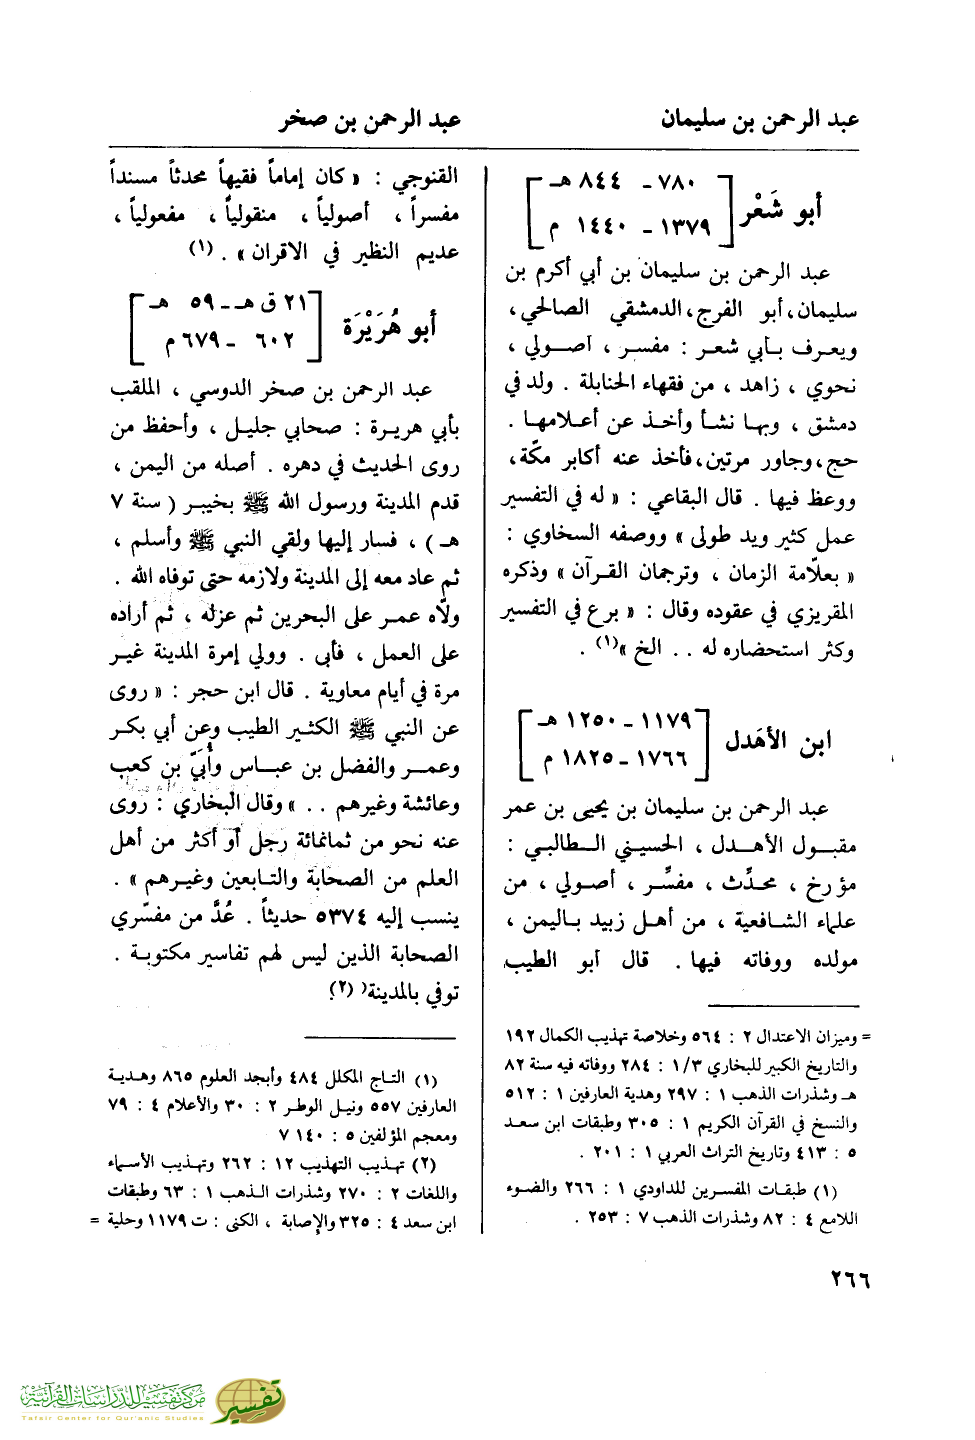 عبد الرحمن بن سليمان
عبد الرحمن بن صخر
أبو شَعْر
٧٨٠ - ٨٤٤ هـ
١٣٧٩ - ١٤٤٠ م
عبد الرحمن بن سليمان بن أبي أكرم بن
سليمان، أبو الفرج، الدمشقي الصالحي،
ويعرف بـأبي شعر : مفسر ، أصولي ،
نحوي ، زاهد ، من فقهاء الحنابلة . ولد في
دمشق ، وبها نشأ وأخذ عن أعلامها .
حج، وجاور مرتين، فأخذ عنه أكابر مكّة،
ووعظ فيها . قال البقاعي : « له في التفسير
عمل كثير ويد طولى » ووصفه السخاوي :
« بعلّامة الزمان ، وترجمان القرآن » وذكره
المقريزي في عقوده وقال : « برع في التفسير
وكثر استحضاره له . . الخ »(١) .
ابن الأهَدل
١١٧٩ - ١٢٥٠ هـ
١٧٦٦ - ١٨٢٥ م
عبد الرحمن بن سليمان بن يحيى بن عمر
مقبول الأهدل ، الحسيني الطالبي :
مؤرخ ، محدِّث ، مفسِّر ، أصولي ، من
علماء الشافعية ، من أهل زبيد باليمن ،
مولده ووفاته فيها. قال أبو الطيب
= وميزان الاعتدال ٢ : ٥٦٤ وخلاصة تهذيب الكمال ١٩٢
والتاريخ الكبير للبخاري ١/٣ : ٢٨٤ ووفاته فيه سنة ٨٢
هـ وشذرات الذهب ١ : ٢٩٧ وهدية العارفين ١ : ٥١٢
والنسخ في القرآن الكريم ١ : ٣٠٥ وطبقات ابن سعد
٥ : ٤١٣ وتاريخ التراث العربي ١ : ٢٠١ .
(١) طبقات المفسرين للداودي ١ : ٢٦٦ والضوء
اللامع ٤ : ٨٢ وشذرات الذهب ٧ : ٢٥٣ .
القنوجي : « كان إماماً فقيهاً محدثاً مسنداً
مفسراً ، أصولياً ، منقولياً ، مفعولياً ،
عديم النظير في الاقران » . (١)
أبو هُرَيْرَة
٢١ ق هـ - ٥٩ هـ
٦٠٢ - ٦٧٩ م
عبد الرحمن بن صخر الدوسي ، الملقب
بأبي هريرة : صحابي جليل ، وأحفظ من
روى الحديث في دهره . أصله من اليمن ،
قدم المدينة ورسول الله ﷺ بخيبر ( سنة ٧
هـ ) ، فسار إليها ولقي النبي ﷺ وأسلم ،
ثم عاد معه إلى المدينة ولازمه حتى توفاه الله .
ولّاه عمر على البحرين ثم عزله ، ثم أراده
على العمل ، فأبى . وولي إمرة المدينة غير
مرة في أيام معاوية . قال ابن حجر : « روى
عن النبي ﷺ الكثير الطيب وعن أبي بكر
وعمر والفضل بن عباس وأُبَيّ بن كعب
وعائشة وغيرهم . . » وقال البخاري : روى
عنه نحو من ثمانمائة رجل أو أكثر من أهل
العلم من الصحابة والتابعين وغيرهم » .
ينسب إليه ٥٣٧٤ حديثاً . عُدَّ من مفسّري
الصحابة الذين ليس لهم تفاسير مكتوبة .
توفي بالمدينة(٢).
(١) التاج المكلل ٤٨٤ وأبجد العلوم ٨٦٥ وهدية
العارفين ٥٥٧ ونيل الوطر ٢ : ٣٠ والأعلام ٤ : ٧٩
ومعجم المؤلفين ٥ : ١٤٠ ٧
(٢) تهذيب التهذيب ١٢ : ٢٦٢ وتهذيب الأسماء
واللغات ٢ : ٢٧٠ وشذرات الذهب ١ : ٦٣ وطبقات
ابن سعد ٤ : ٣٢٥ والإصابة ، الكنى : ت ١١٧٩ وحلية =
٢٦٦
مركز تفسير للدراسات القرآنية
Tafsir Center for Qur'anic Studies
تفسير